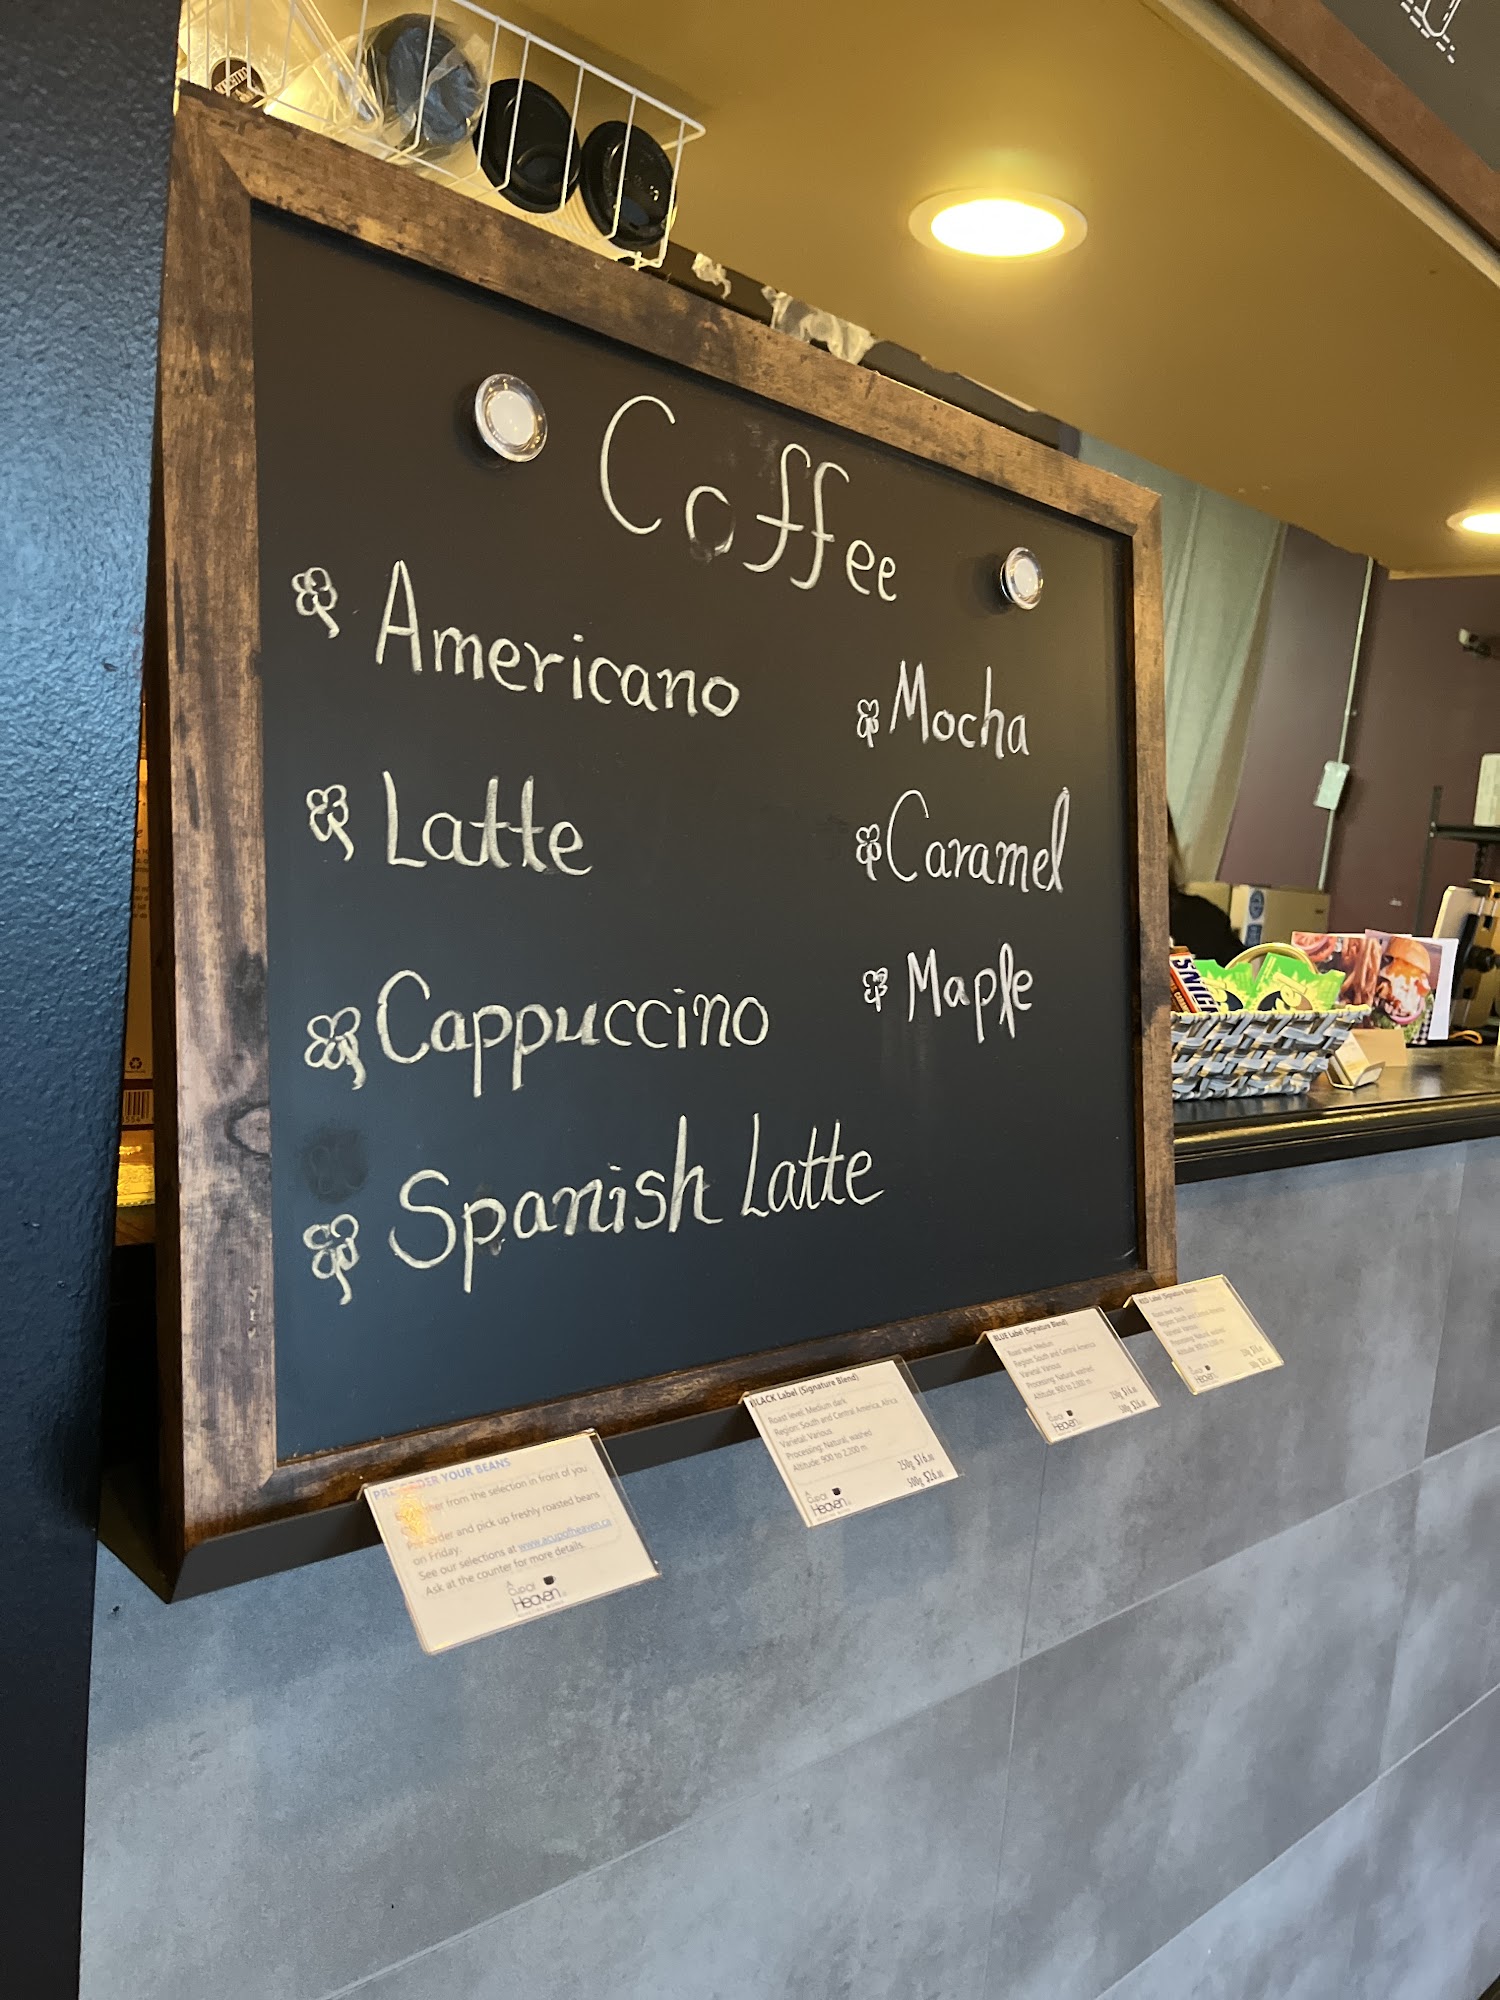 Coffee
Americano
Latte
Cappuccino
Spanish Latte
Mocha
Caramel
Maple
PRE-ORDER YOUR BEANS
from the selection in front of you
order and pick up freshly roasted beans
on Friday.
See our selections at www.acupofheaven.ca
Ask at the counter for more details.
A
CUP OF
Heaven
BLACK Label (Signature Blend)
Roast level: Medium dark
Region: South and Central America, Africa
Varietal: Various
Processing: Natural, washed
Altitude: 900 to 2,200 m
250g $16.00
500g $26.00
A
CUP OF
Heaven
BLUE Label (Signature Blend)
Roast level: Medium
Region: South and Central America
Varietal: Various
Processing: Natural, washed
250g $16.00
500g $26.00
Heaven
RED Label (Signature Blend)
Region: South and Central America
Varietal: Various
Processing: Natural, washed
Heaven